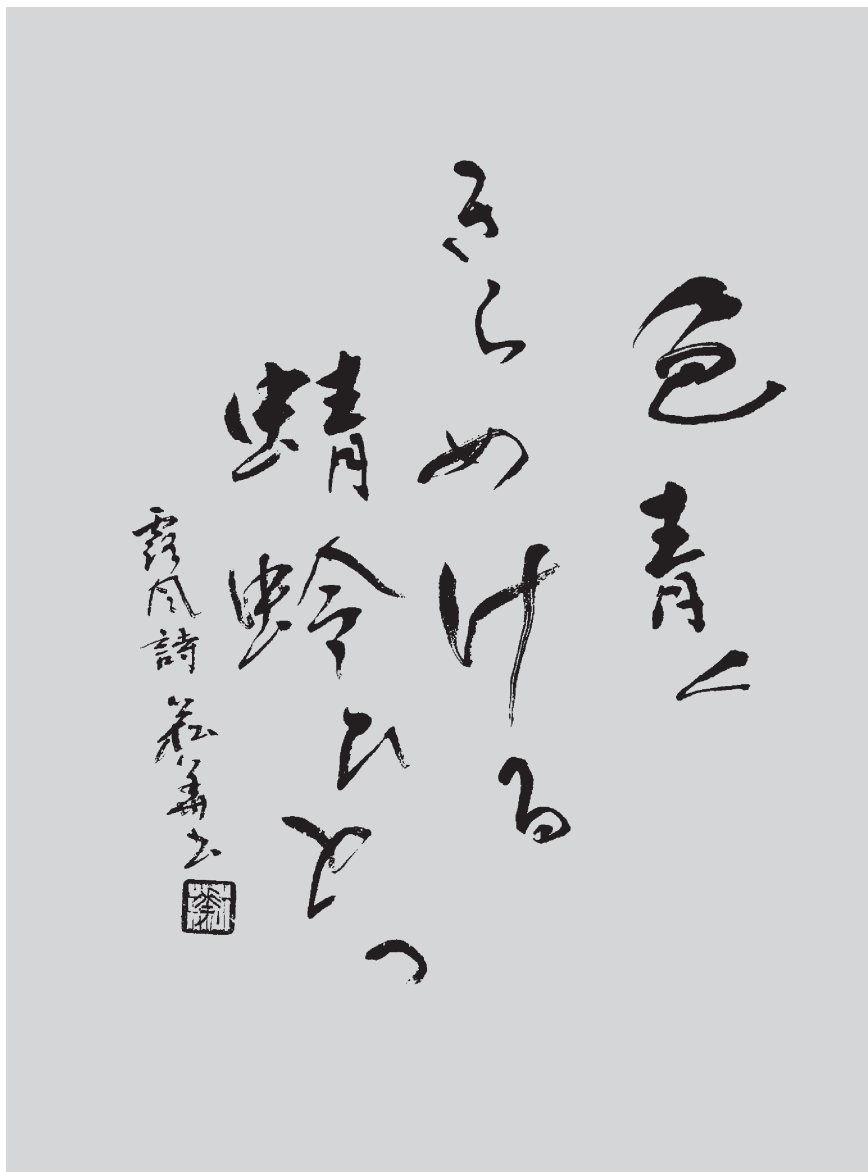 色青く
きらめける
蜻蛉ひとつ
露風詩 書